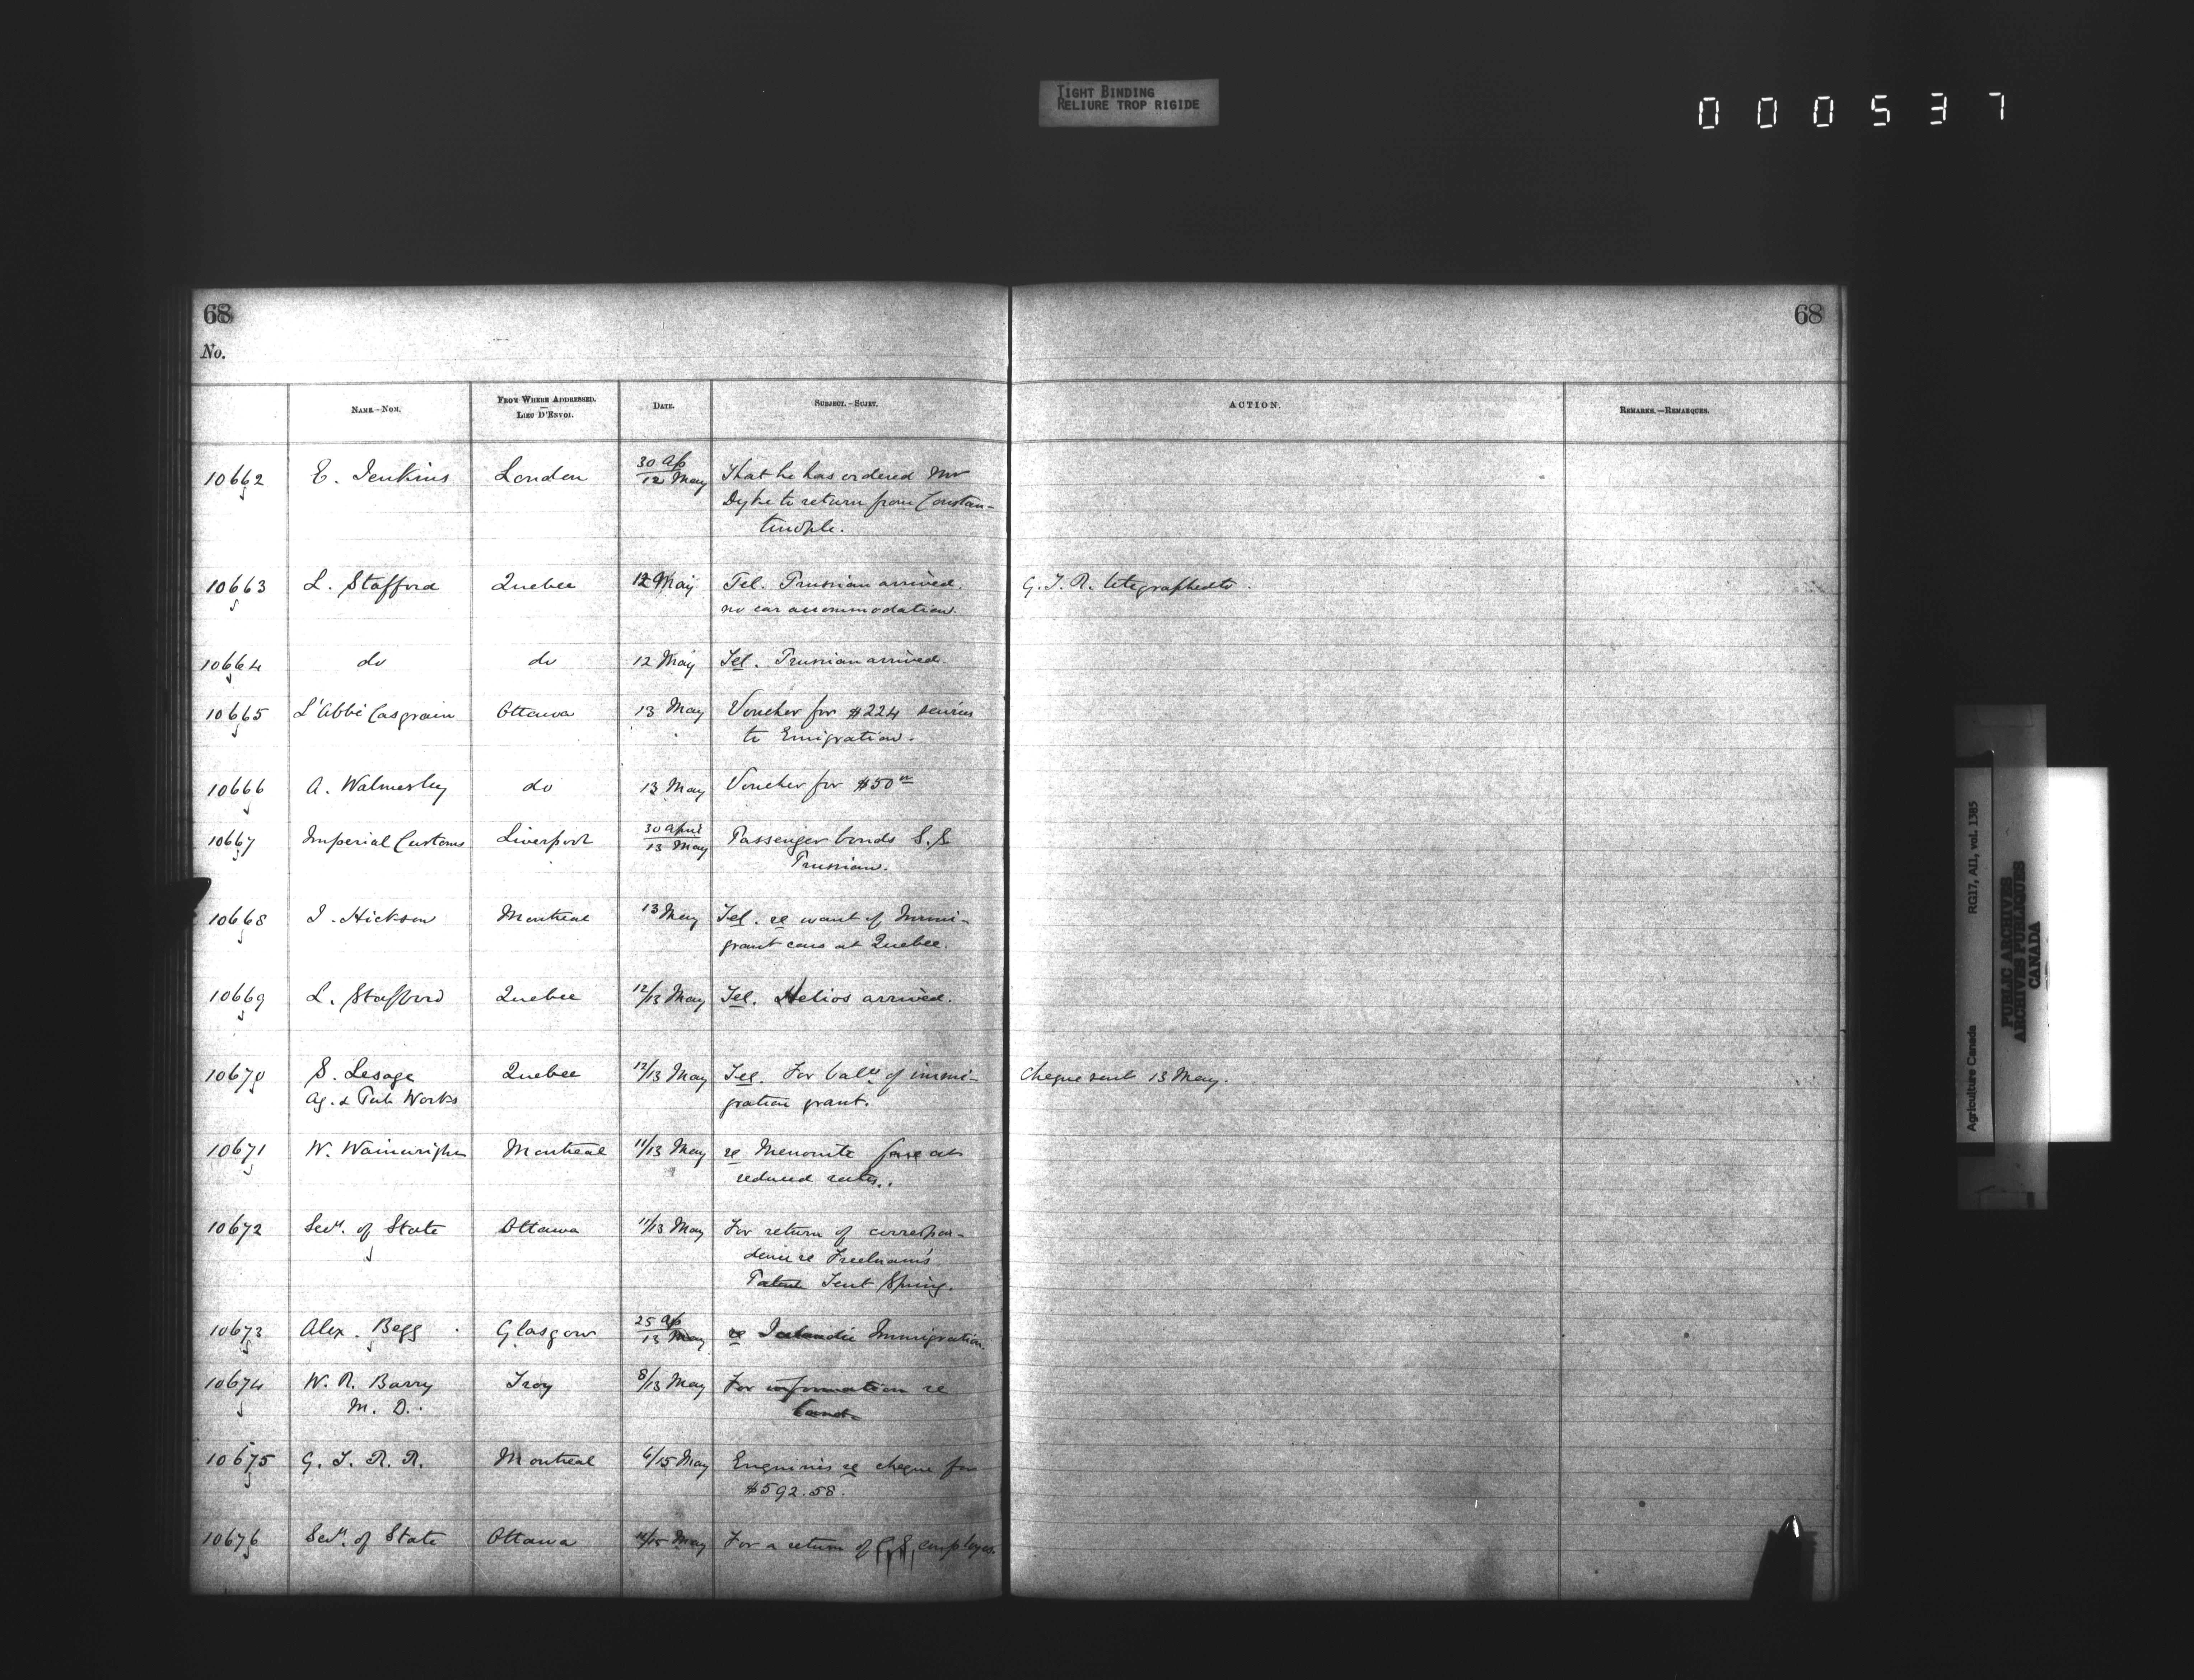 TIGHT BINDING
RELIURE TROP RIGIDE
000537
68
68
No.
NAME.—NOM.
FROM WHERE ADDRESSED.
—
LIEU D'ENVOI.
DATE.
SUBJECT.—SUJET.
ACTION.
REMARKS.—REMARQUES.
10662 E. Jenkins London 30 Ap/12 May That he has ordered Mr
Dyke to return from Constan-
tinople.
10663 L. Stafford Quebec 12 May Tel. Prussian arrived. G.T.R. telegraphed to.
no car accommodation.
10664 do do 12 May Tel. Prussian arrived.
10665 L'Abbé Casgrain Ottawa 13 May Voucher for $224 services
to Emigration.
10666 A. Walmesley do 13 May Voucher for $50 00
10667 Imperial Customs Liverpool 30 April/13 May Passenger bonds S.S.
Prussian.
10668 J. Hickson Montreal 13 May Tel. re want of Immi-
grant cars at Quebec.
10669 L. Stafford Quebec 12/13 May Tel. Helios arrived.
10670 S. Lesage Quebec 12/13 May Tel. For balce of immi- Cheque sent 13 May.
Ag. & Pub. Works gration grant.
10671 W. Wainwright Montreal 11/13 May re Menonite fare at
reduced rates.
10672 Secy. of State Ottawa 11/13 May For return of correspon-
dence re
Patent Tent Spring.
10673 Alex. Begg Glasgow 25 Ap/13 May re Icelandic Immigration.
10674 W. R. Barry Troy 8/13 May For information re
M. D. Land.
10675 G. T. R. R. Montreal 6/15 May Enquiries re cheque for
$592.58.
10676 Secy. of State Ottawa /15 May For a return of C.S. employes.
Agriculture Canada RG17, AI1, vol. 1385
PUBLIC ARCHIVES
ARCHIVES PUBLIQUES
CANADA